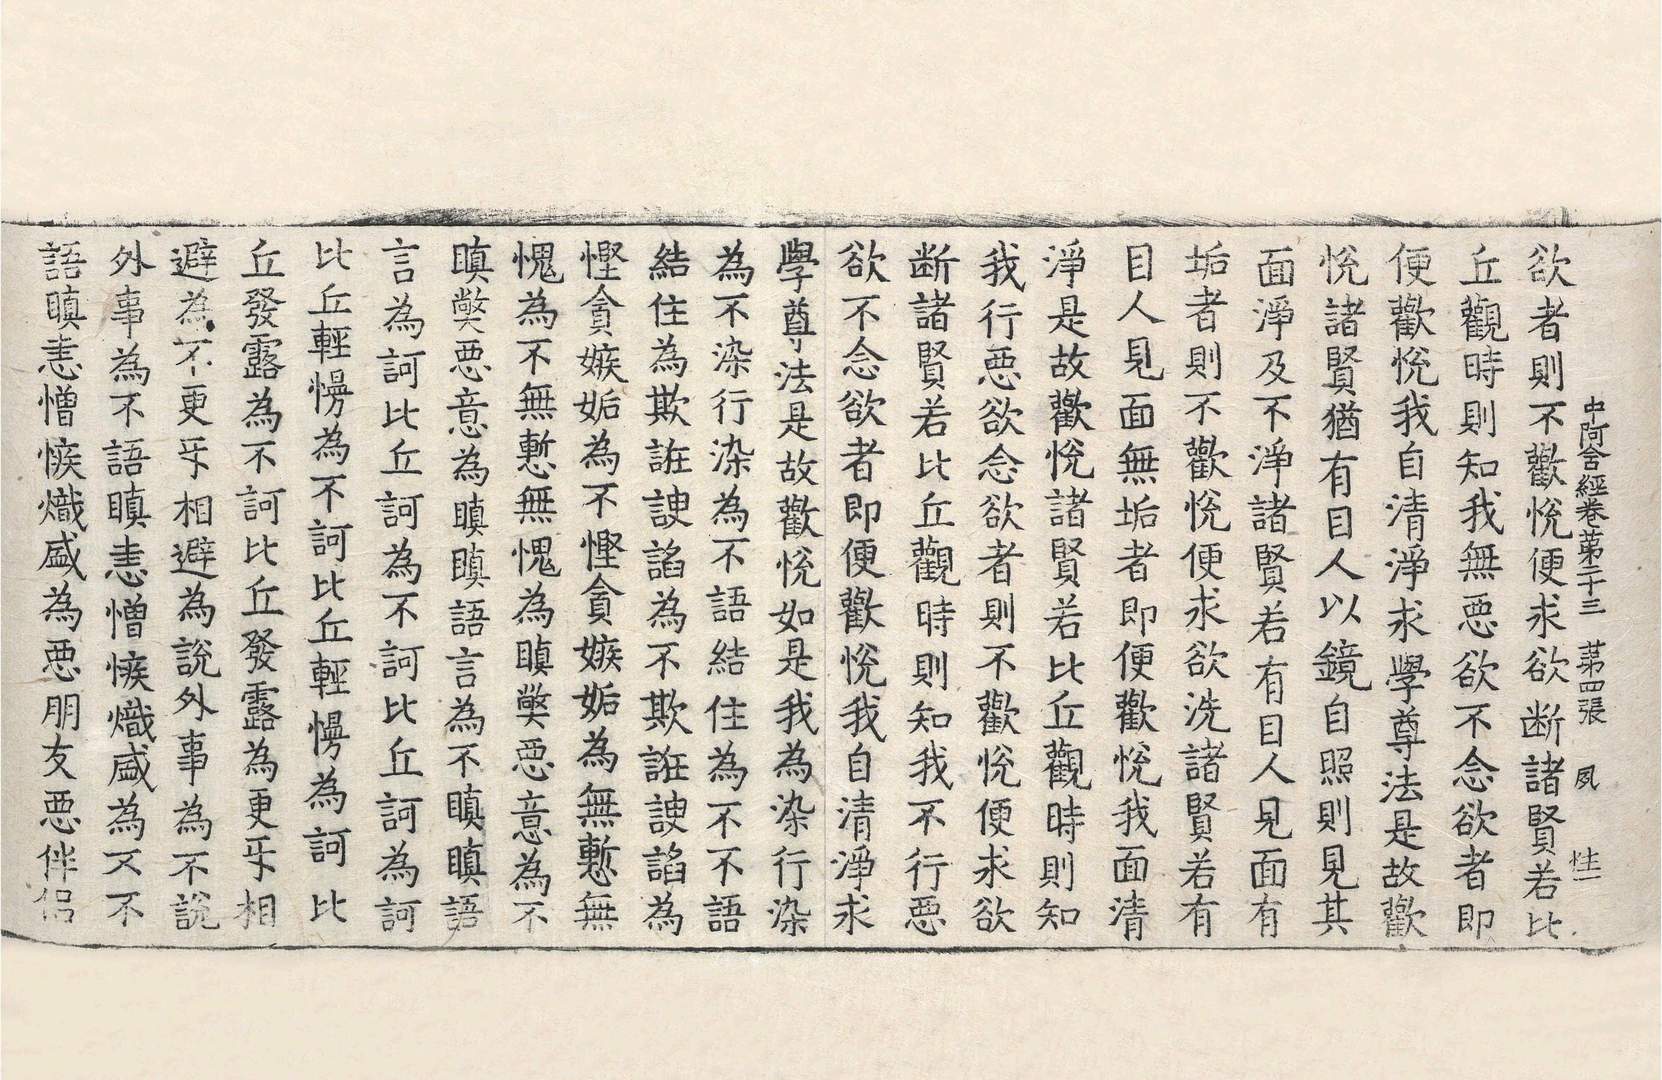 中阿含經卷第二十三 第四張 夙 性
欲者則不歡悅便求欲断諸賢若比
丘觀時則知我無惡欲不念欲者即
便歡悅我自清淨求學尊法是故歡
悅諸賢猶有目人以鏡自照則見其
面淨及不淨諸賢若有目人見面有
垢者則不歡悅便求欲洗諸賢若有
目人見面無垢者即便歡悅我面清
淨是故歡悅諸賢若比丘觀時則知
我行惡欲念欲者則不歡悅便求欲
断諸賢若比丘觀時則知我不行惡
欲不念欲者即便歡悅我自清淨求
學尊法是故歡悅如是我為染行染
為不染行染為不語結住為不不語
結住為欺誑諛諂為不欺誑諛諂為
慳貪嫉妬為不慳貪嫉妬為無慙無
愧為不無慙無愧為瞋弊惡意為不
瞋弊惡意為瞋瞋語言為不瞋瞋語
言為訶比丘訶為不訶比丘訶為訶
比丘輕慢為不訶比丘輕慢為訶比
丘發露為不訶比丘發露為更牙相
避為不更牙相避為說外事為不說
外事為不語瞋恚憎嫉熾盛為不不
語瞋恚憎嫉熾盛為惡朋友惡伴侶